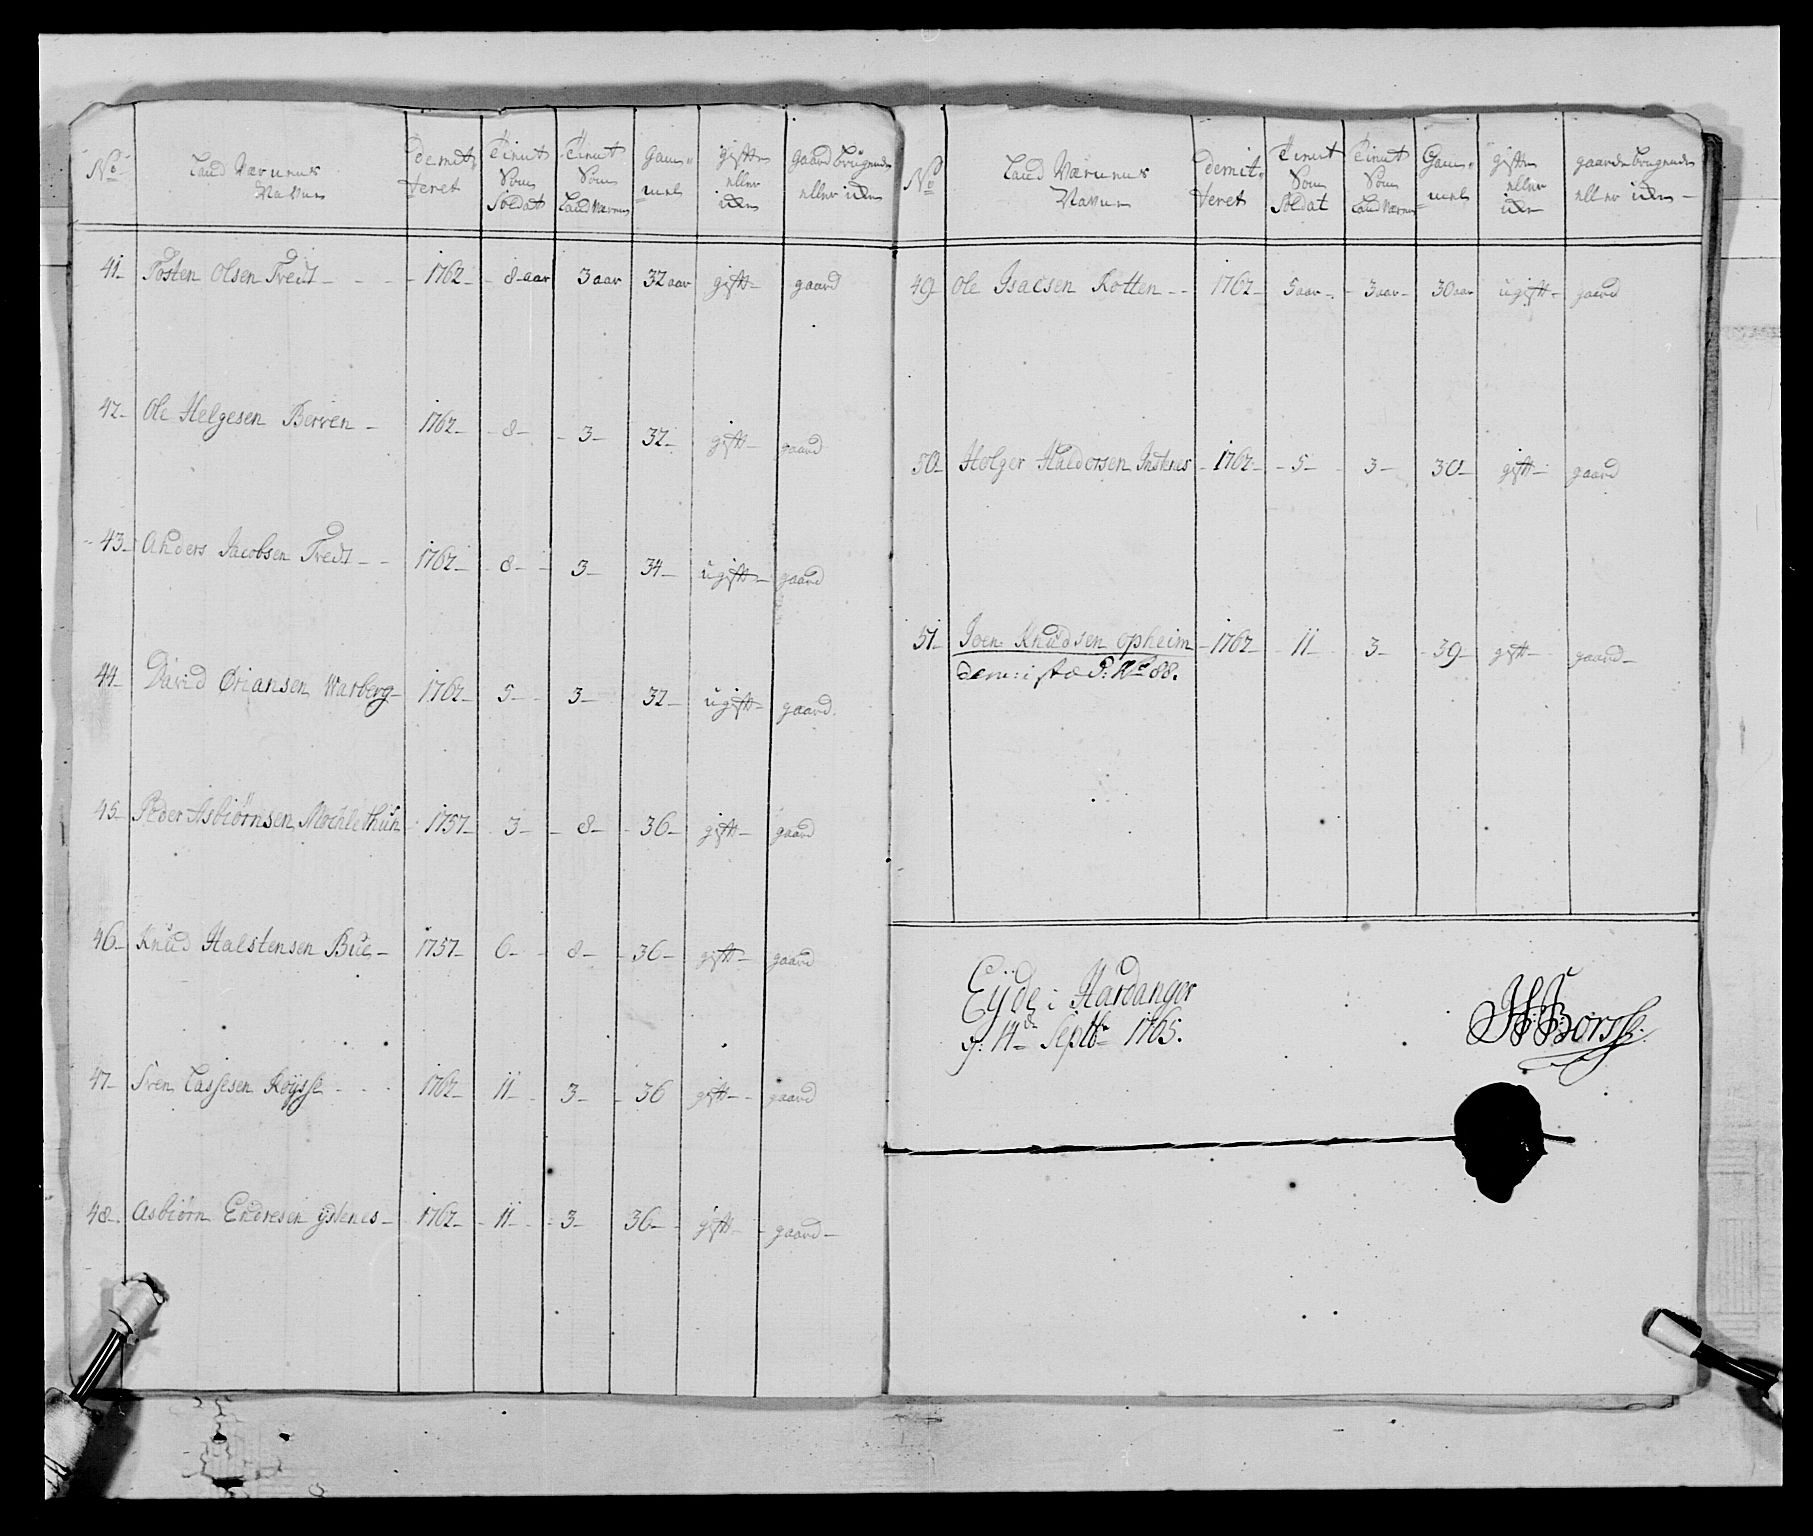 No
Land Værnens
Navne
demit-
teret
tient
Som
Soldat
tient
Som
Land Værn
Gam-
mel
gift
eller
ikke
gaard brugende
eller ikke
41 Tosten Olsen Tvedt 1762 8 aar 3 aar 32 aar gift gaard
42 Ole Helgesen Berven 1762 8 3 32 gift gaard
43 Anders Jacobsen Tvedt 1762 8 3 34 ugift gaard
44 David Ørjansen Warberg 1762 5 3 32 ugift gaard
45 Peder Asbiørnsen 1757 3 8 36 gift gaard
46 Knud Halstensen Bue 1757 6 8 36 gift gaard
47 Sven Lassesen Røysse 1762 11 3 36 gift gaard
48 Asbiørn Endresen ystenes 1762 11 3 36 gift gaard
No
Land Værnens
Navne
demit-
teret
tient
Som
Soldat
tient
Som
Land Værn
Gam-
mel
gift
eller
ikke
gaard brugende
eller ikke
49 Ole Isacsen Kotten 1762 5 aar 3 aar 30 aar ugift gaard
50 Holger Haldorsen Instenes 1762 5 3 30 gift gaard
51 Joen Knudsen opheim 1762 11 3 39 gift gaard
No 88.
Eyde i Hardanger
d: 14de Septbr 1765.